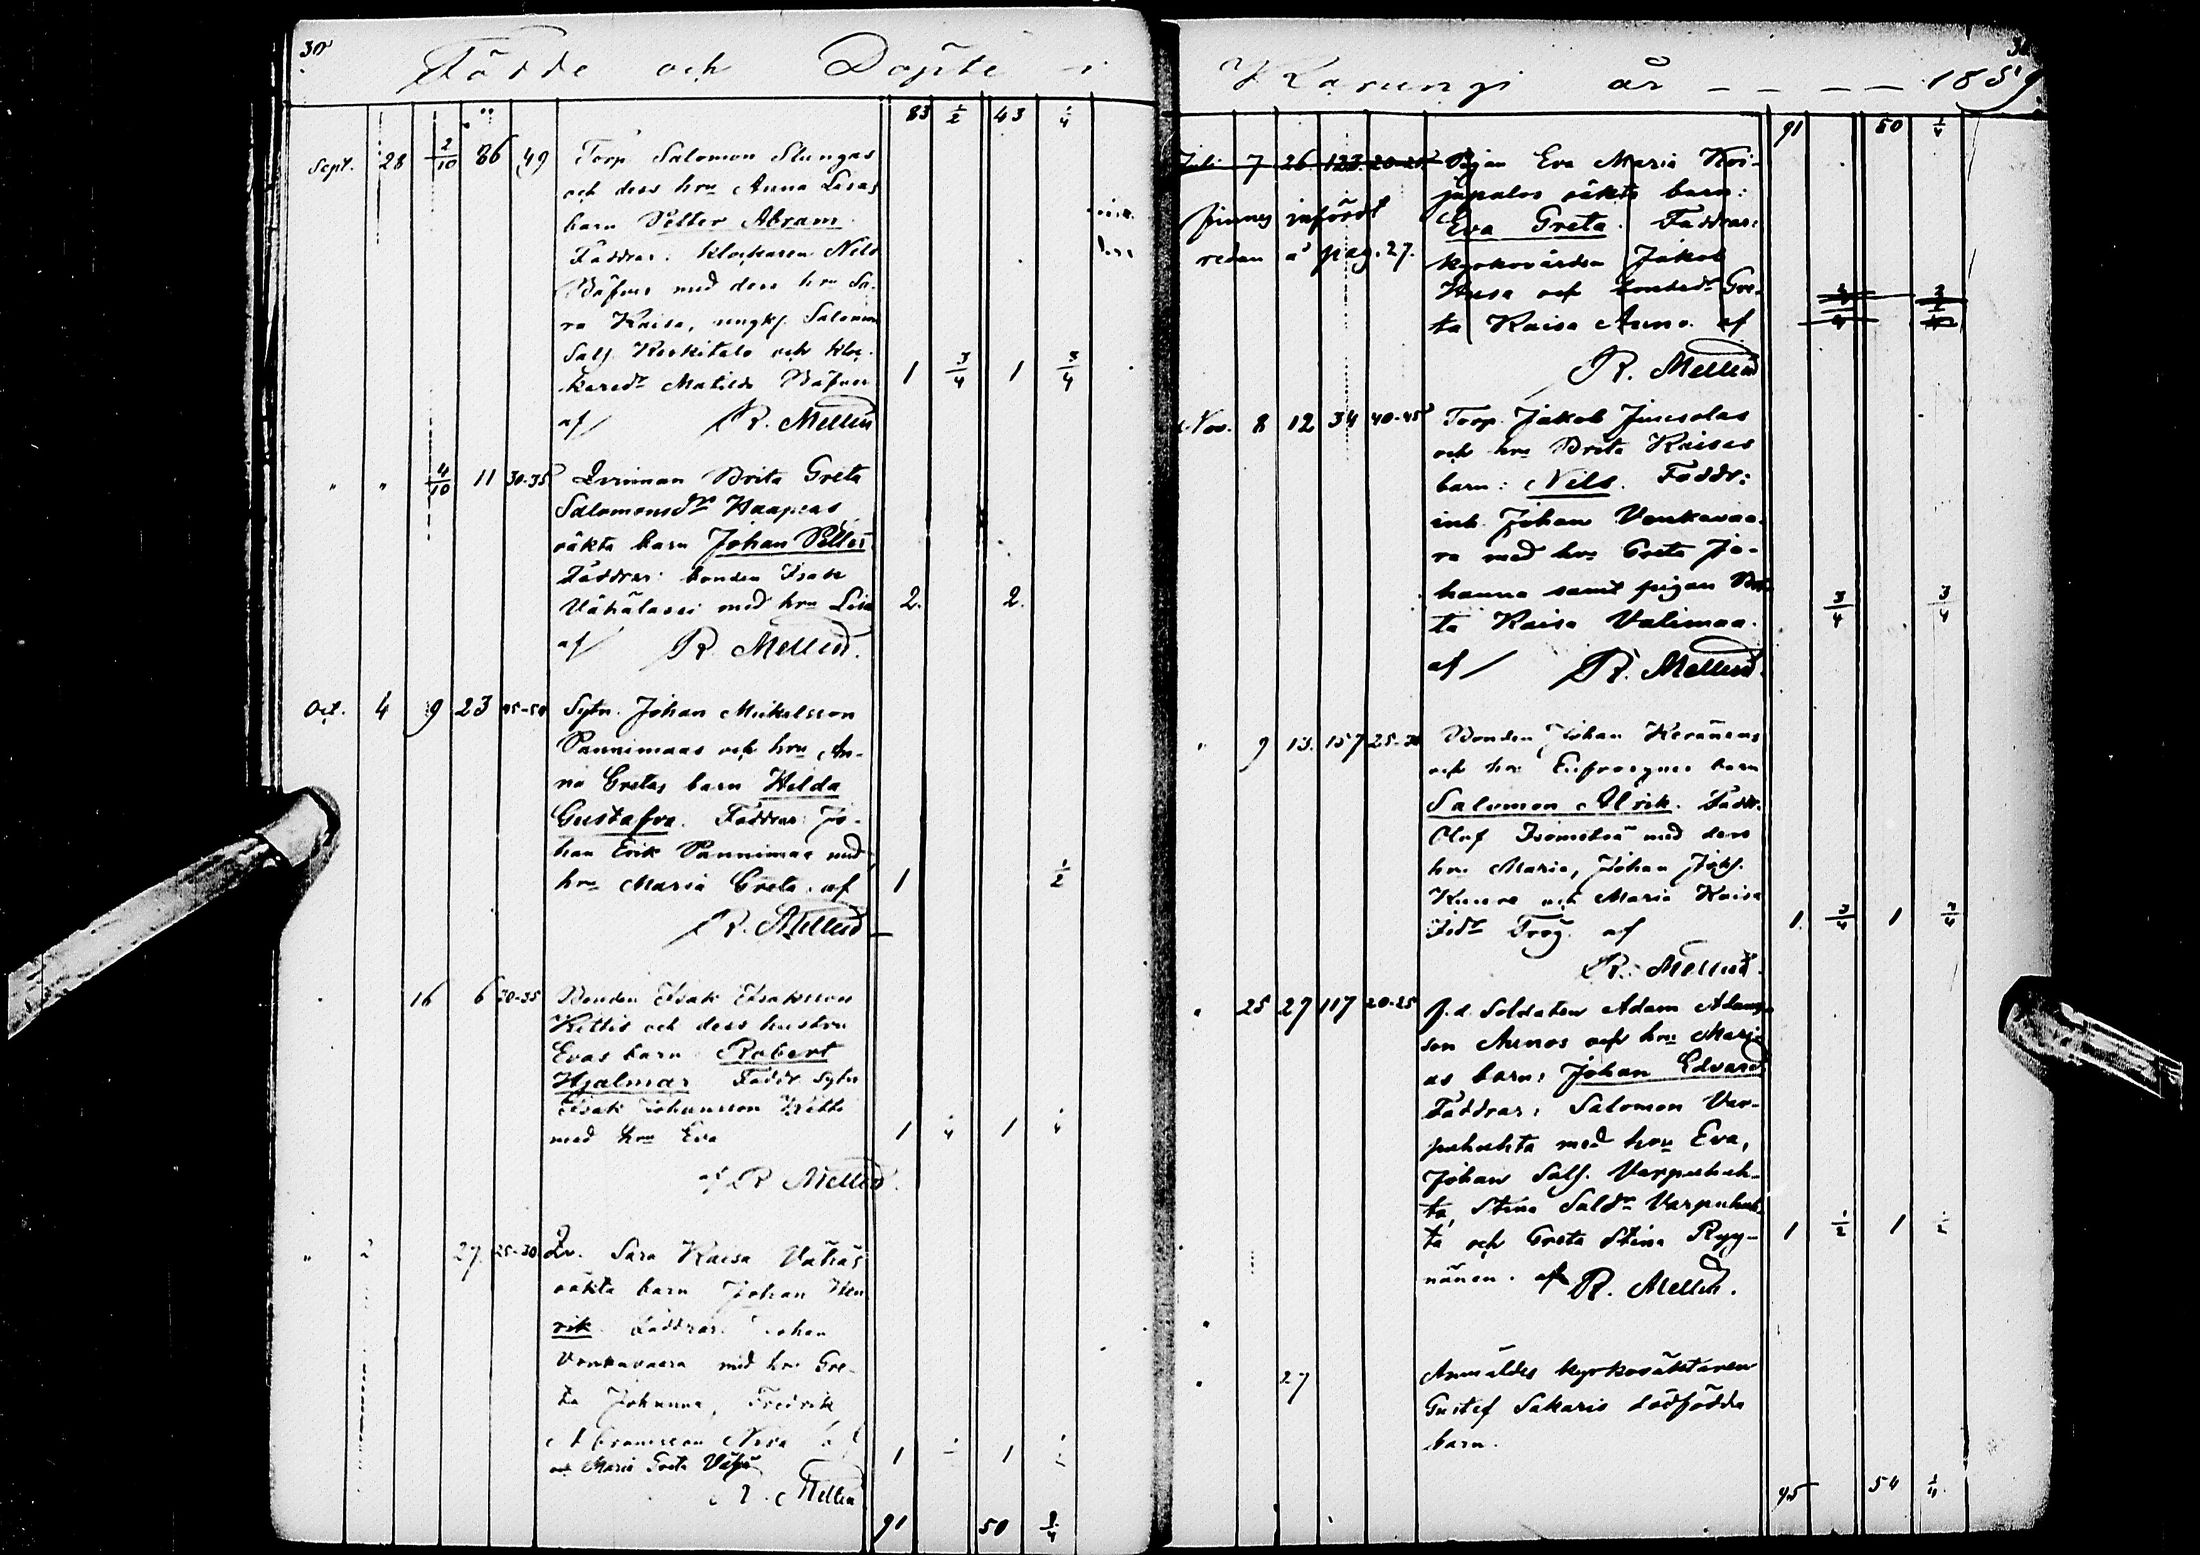 30
Födde och Döpte i
83 1/2 43 1/4
Sept. 28 2/10 86 49 Torp. Salomon Slungas
och dess hru Anna Lisas
barn Petter Abram.
Faddrar: klockaren Nils
Båfver med dess hru Sa-
ra Kaisa, ungk. Salomon
Sals. Keskitalo och kloc-
karedr Matilda Båfver 1 3/4 1 3/4
af R. Mellin
" " 4/10 11 30-35 Qvinnan Brita Greta
Salomonsdr Haapeas
oäkta barn Johan Petter.
Faddrar: bonden Isak
Vähälassi med hru Lisa 2. 2.
af R Mellin.
Oct. 4 9 23 45-50 Sytn. Johan Mickelsson
Pannimaas och hru An-
na Gretas barn Hilda
Gustafva. Faddrar: Jo-
han Erik Pannimaa med
hru Maria Greta. af 1 1/2
R. Mellin
16 6 30-35 Bonden Isak Isaksson
Kittis och dess hustru
Evas barn Robert
Hjalmar Faddr. Sytn
Isak Johansson Kitti
med hru Eva 1 1/4 1 1/4
af R Mellin.
" 2 27 25-30 Qv. Sara Kaisa Vähäs
oäkta barn Johan Hen
rik. Faddrar: Johan
Vonkavaara med hru Gre-
ta Johanna, Fredrik
Abramsson Niva
och Maria Greta Vähä 1 1
R. Mellin
91 50 3/4
Karungi år - - - - 1859.
91 50 1/4
Juli 7 26. 123. 20-25 Pigan Eva Maria Koi-
jupalos oäkta barn:
finnes infördt Eva Greta. Faddrar:
redan å pag. 27. kyrkovärden Jakob
Husa och bondedr Gre-
ta Kaisa Auno. af
R. Mellin
Nov. 8 12 34 40-45 Torp. Jakob Juusolas
och hru Brita Kaisas
barn: Nils. Faddr:
inh. Johan Vonkavaa-
ra med hru Greta Jo-
hanna samt pigan Bri-
ta Kaisa Valimaa. 3/4 3/4
af R. Mellin.
" 9 13. 157 25-30 Bonden Johan Keränens
och hru Eufrosynes barn
Salomon Alrik. Faddr.
Olof Isomitsä med dess
hru Maria, Johan Johs.
Kunove och Maria Kaisa
Isdr Frog. af 1. 3/4 1 3/4
R. Mellin.
" 25 27 117 20-25 f.d. Soldaten Adam Adams-
son Aunos och hru Mari-
as barn: Johan Edvard
Faddrar: Salomon Var-
puhuhta med hru Eva,
Johan Sals. Varpuhuh-
ta, Stina Saldr Varpuhuh-
ta och Greta Stina Ryy- 1 1/2 1 1/2
nänen. af R. Mellin.
" 27 Anmäldes kyrkoväktaren
Gustaf Sakaris dödfödda
barn.
95 54 1/4